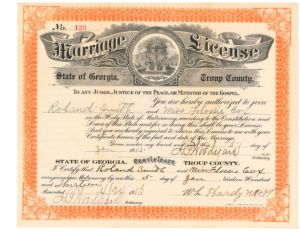 No. 120
Marriage License
State of Georgia, Troup County.
TO ANY JUDGE, JUSTICE OF THE PEACE, OR MINISTER OF THE GOSPEL.
You are hereby authorized to join
Roland Smith and Miss Flossie Cox
in the Holy State of Matrimony according to the Constitution and
Laws of this State and for so doing this shall be your License
And you are hereby required to return this License to me with your
Certificate hereon of the fact and date of the Marriage.
Given under my hand and seal this day of
STATE OF GEORGIA. CERTIFICATE TROUP COUNTY.
I Certify that Roland Smith and Miss Flossie Cox
were joined in Matrimony by me this 5 day of Jan Nineteen Hundred
and Thirteen
W. L. Hardy